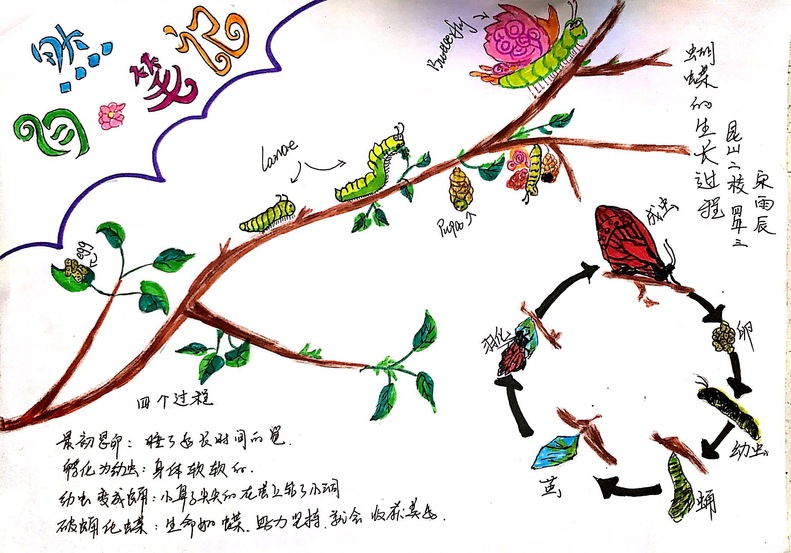 自然笔记
Butterfly
蝴蝶的生长过程
昆山二校 四年三
宋雨辰
Larvae
Pupa
egg
成虫
卵
幼虫
蛹
茧
羽化
四个过程
最初是卵：睡了好长时间的觉.
孵化为幼虫：身体软软的.
幼虫变成蛹：小鼻子尖尖的在茧上钻了小洞
破蛹化蝶：生命如蝶，努力坚持，就会收获美好.